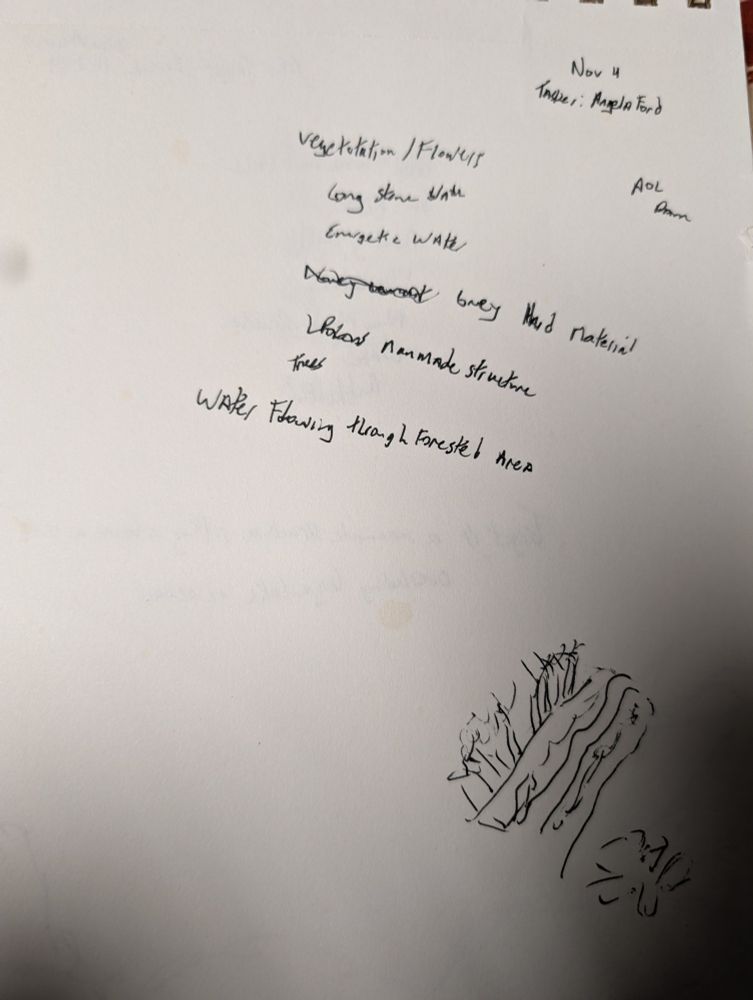 Nov 4
Tasker: Angela Ford
Vegetotation / Flowers
AOL
Long stone WAll
Energetic WAter
Grey Hard Material
Manmade structure
trees
WAter Flowing through Forested Area